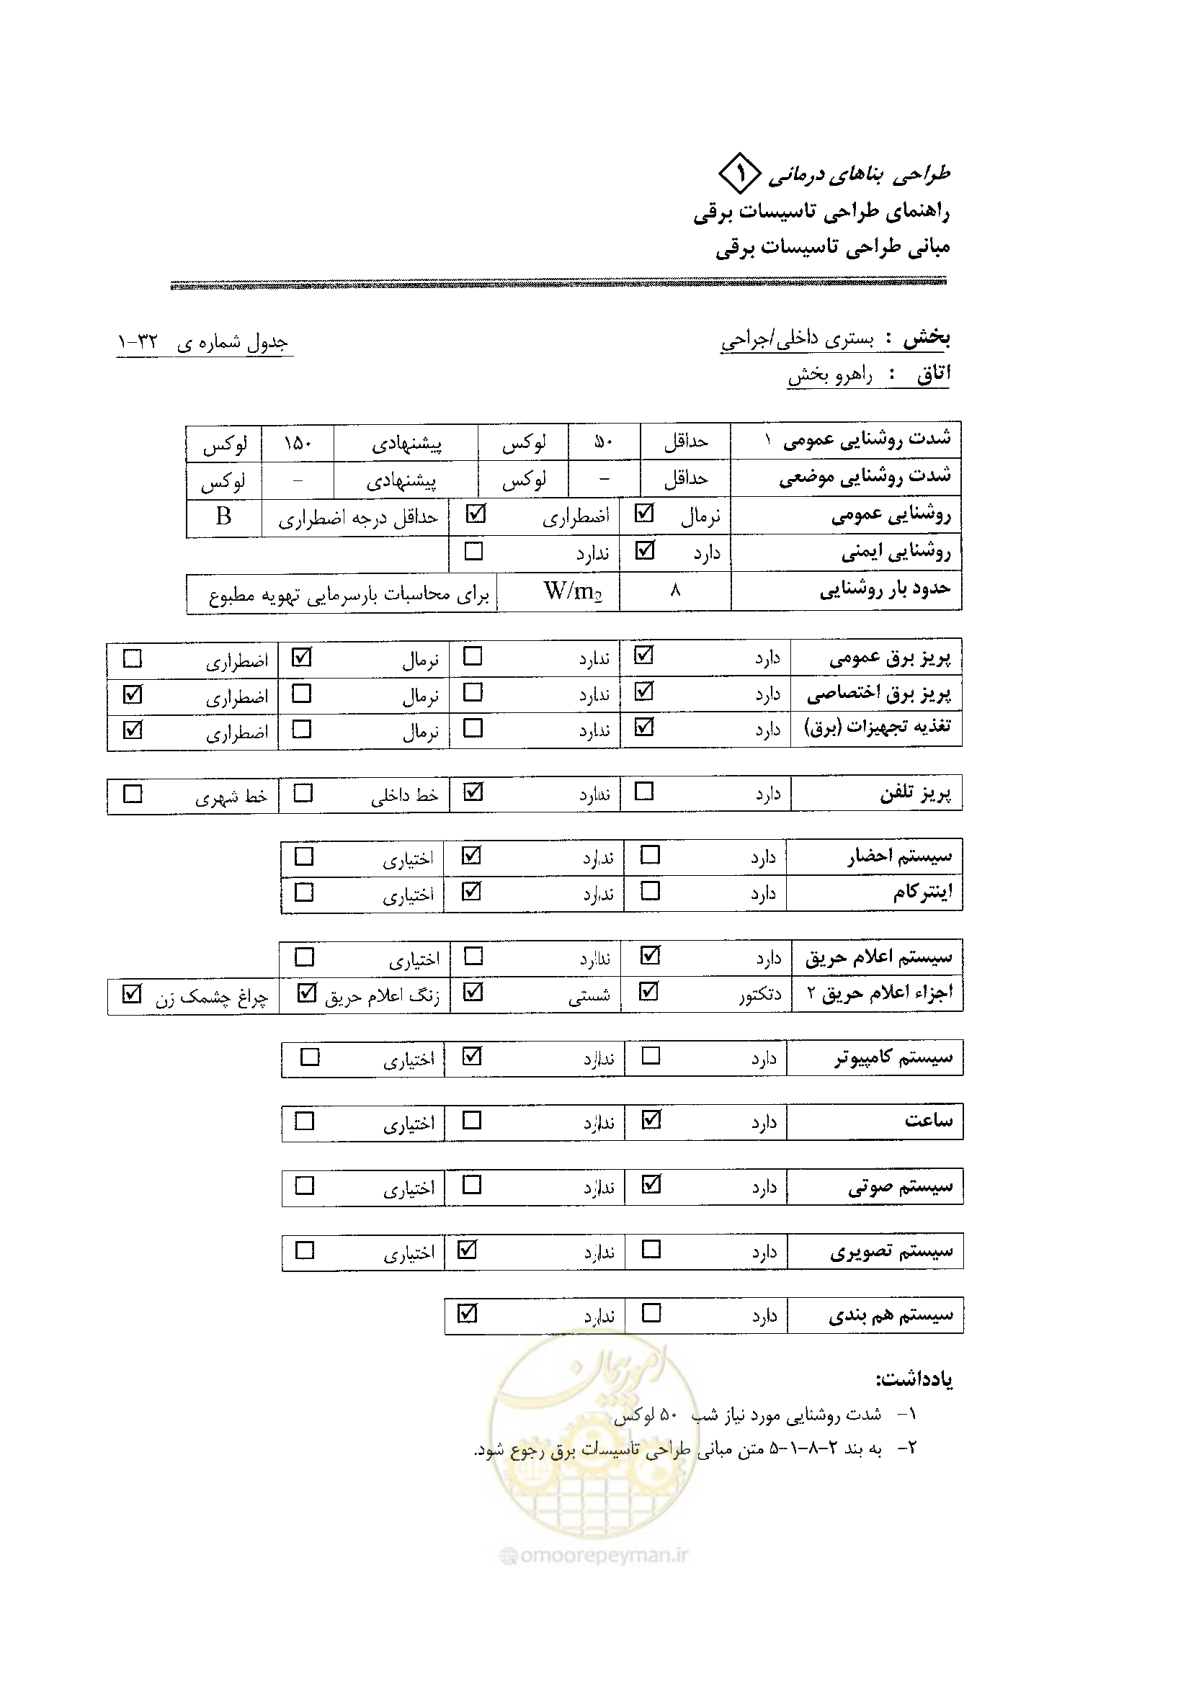 طراحی بناهای درمانی ۱
راهنمای طراحی تاسیسات برقی
مبانی طراحی تاسیسات برقی
بخش : بستری داخلی/جراحی
جدول شماره ی ۳۲-۱
اتاق : راهرو بخش
شدت روشنایی عمومی ۱ حداقل ۵۰ لوکس پیشنهادی ۱۵۰ لوکس
شدت روشنایی موضعی حداقل – لوکس پیشنهادی – لوکس
روشنایی عمومی نرمال ☑ اضطراری ☑ حداقل درجه اضطراری B
روشنایی ایمنی دارد ☑ ندارد ☐
حدود بار روشنایی ۸ W/m2 برای محاسبات بارسرمایی تهویه مطبوع
پریز برق عمومی دارد ☑ ندارد ☐ نرمال ☑ اضطراری ☐
پریز برق اختصاصی دارد ☑ ندارد ☐ نرمال ☐ اضطراری ☑
تغذیه تجهیزات (برق) دارد ☑ ندارد ☐ نرمال ☐ اضطراری ☑
پریز تلفن دارد ☐ ندارد ☑ خط داخلی ☐ خط شهری ☐
سیستم احضار دارد ☐ ندارد ☑ اختیاری ☐
اینترکام دارد ☐ ندارد ☑ اختیاری ☐
سیستم اعلام حریق دارد ☑ ندارد ☐ اختیاری ☐
اجزاء اعلام حریق ۲ دتکتور ☑ شستی ☑ زنگ اعلام حریق ☑ چراغ چشمک زن ☑
سیستم کامپیوتر دارد ☐ ندارد ☑ اختیاری ☐
ساعت دارد ☑ ندارد ☐ اختیاری ☐
سیستم صوتی دارد ☑ ندارد ☐ اختیاری ☐
سیستم تصویری دارد ☐ ندارد ☑ اختیاری ☐
سیستم هم بندی دارد ☐ ندارد ☑
یادداشت:
۱- شدت روشنایی مورد نیاز شب ۵۰ لوکس
۲- به بند ۲-۸-۱-۵ متن مبانی طراحی تاسیسات برق رجوع شود.
امور پیمان
@omoorepeyman.ir